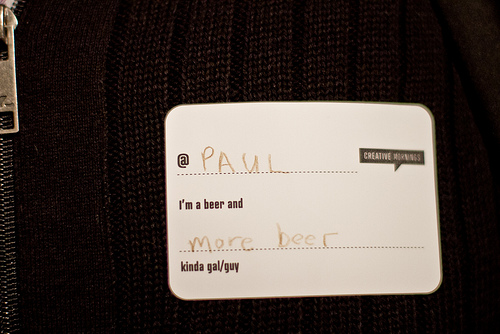 @ PAUL
CREATIVE MORNINGS
I'm a beer and
more beer
kinda gal/guy